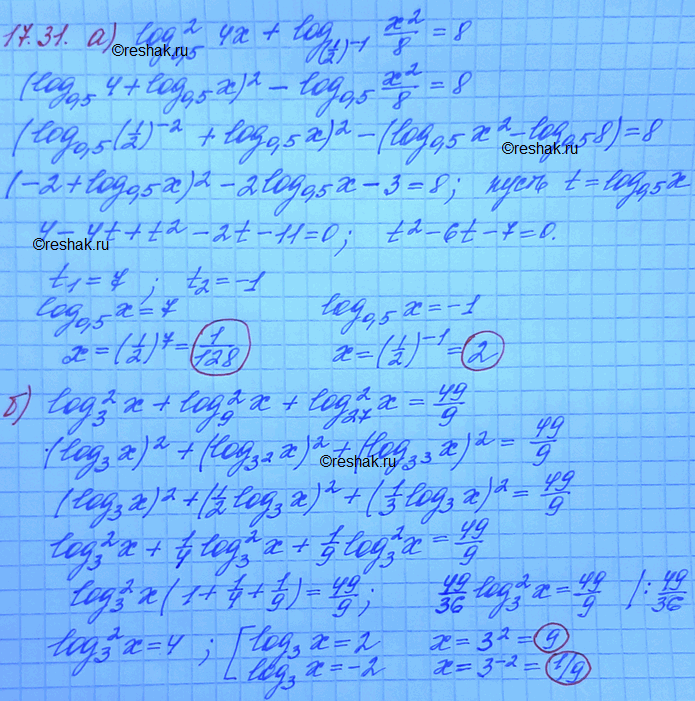 17.31. а) log²₀,₅ 4x + log₍½₎₋₁ x²/8 = 8
©reshak.ru ©reshak.ru
(log₀,₅ 4 + log₀,₅ x)² - log₀,₅ x²/8 = 8
(log₀,₅ (1/2)⁻² + log₀,₅ x)² - (log₀,₅ x² - log₀,₅ 8) = 8
©reshak.ru
(-2 + log₀,₅ x)² - 2log₀,₅ x - 3 = 8; пусть t = log₀,₅ x
4 - 4t + t² - 2t - 11 = 0; t² - 6t - 7 = 0.
©reshak.ru
t₁ = 7; t₂ = -1
log₀,₅ x = 7 log₀,₅ x = -1
x = (1/2)⁷ = 1/128 x = (1/2)⁻¹ = 2
б) log₃² x + log₉² x + log₂₇² x = 49/9
(log₃ x)² + (log₃² x)² + (log₃³ x)² = 49/9
©reshak.ru
(log₃ x)² + (1/2 log₃ x)² + (1/3 log₃ x)² = 49/9
log₃² x + 1/4 log₃² x + 1/9 log₃² x = 49/9
log₃² x (1 + 1/4 + 1/9) = 49/9; 49/36 log₃² x = 49/9 |: 49/36
log₃² x = 4; [ log₃ x = 2 x = 3² = 9
log₃ x = -2 x = 3⁻² = 1/9